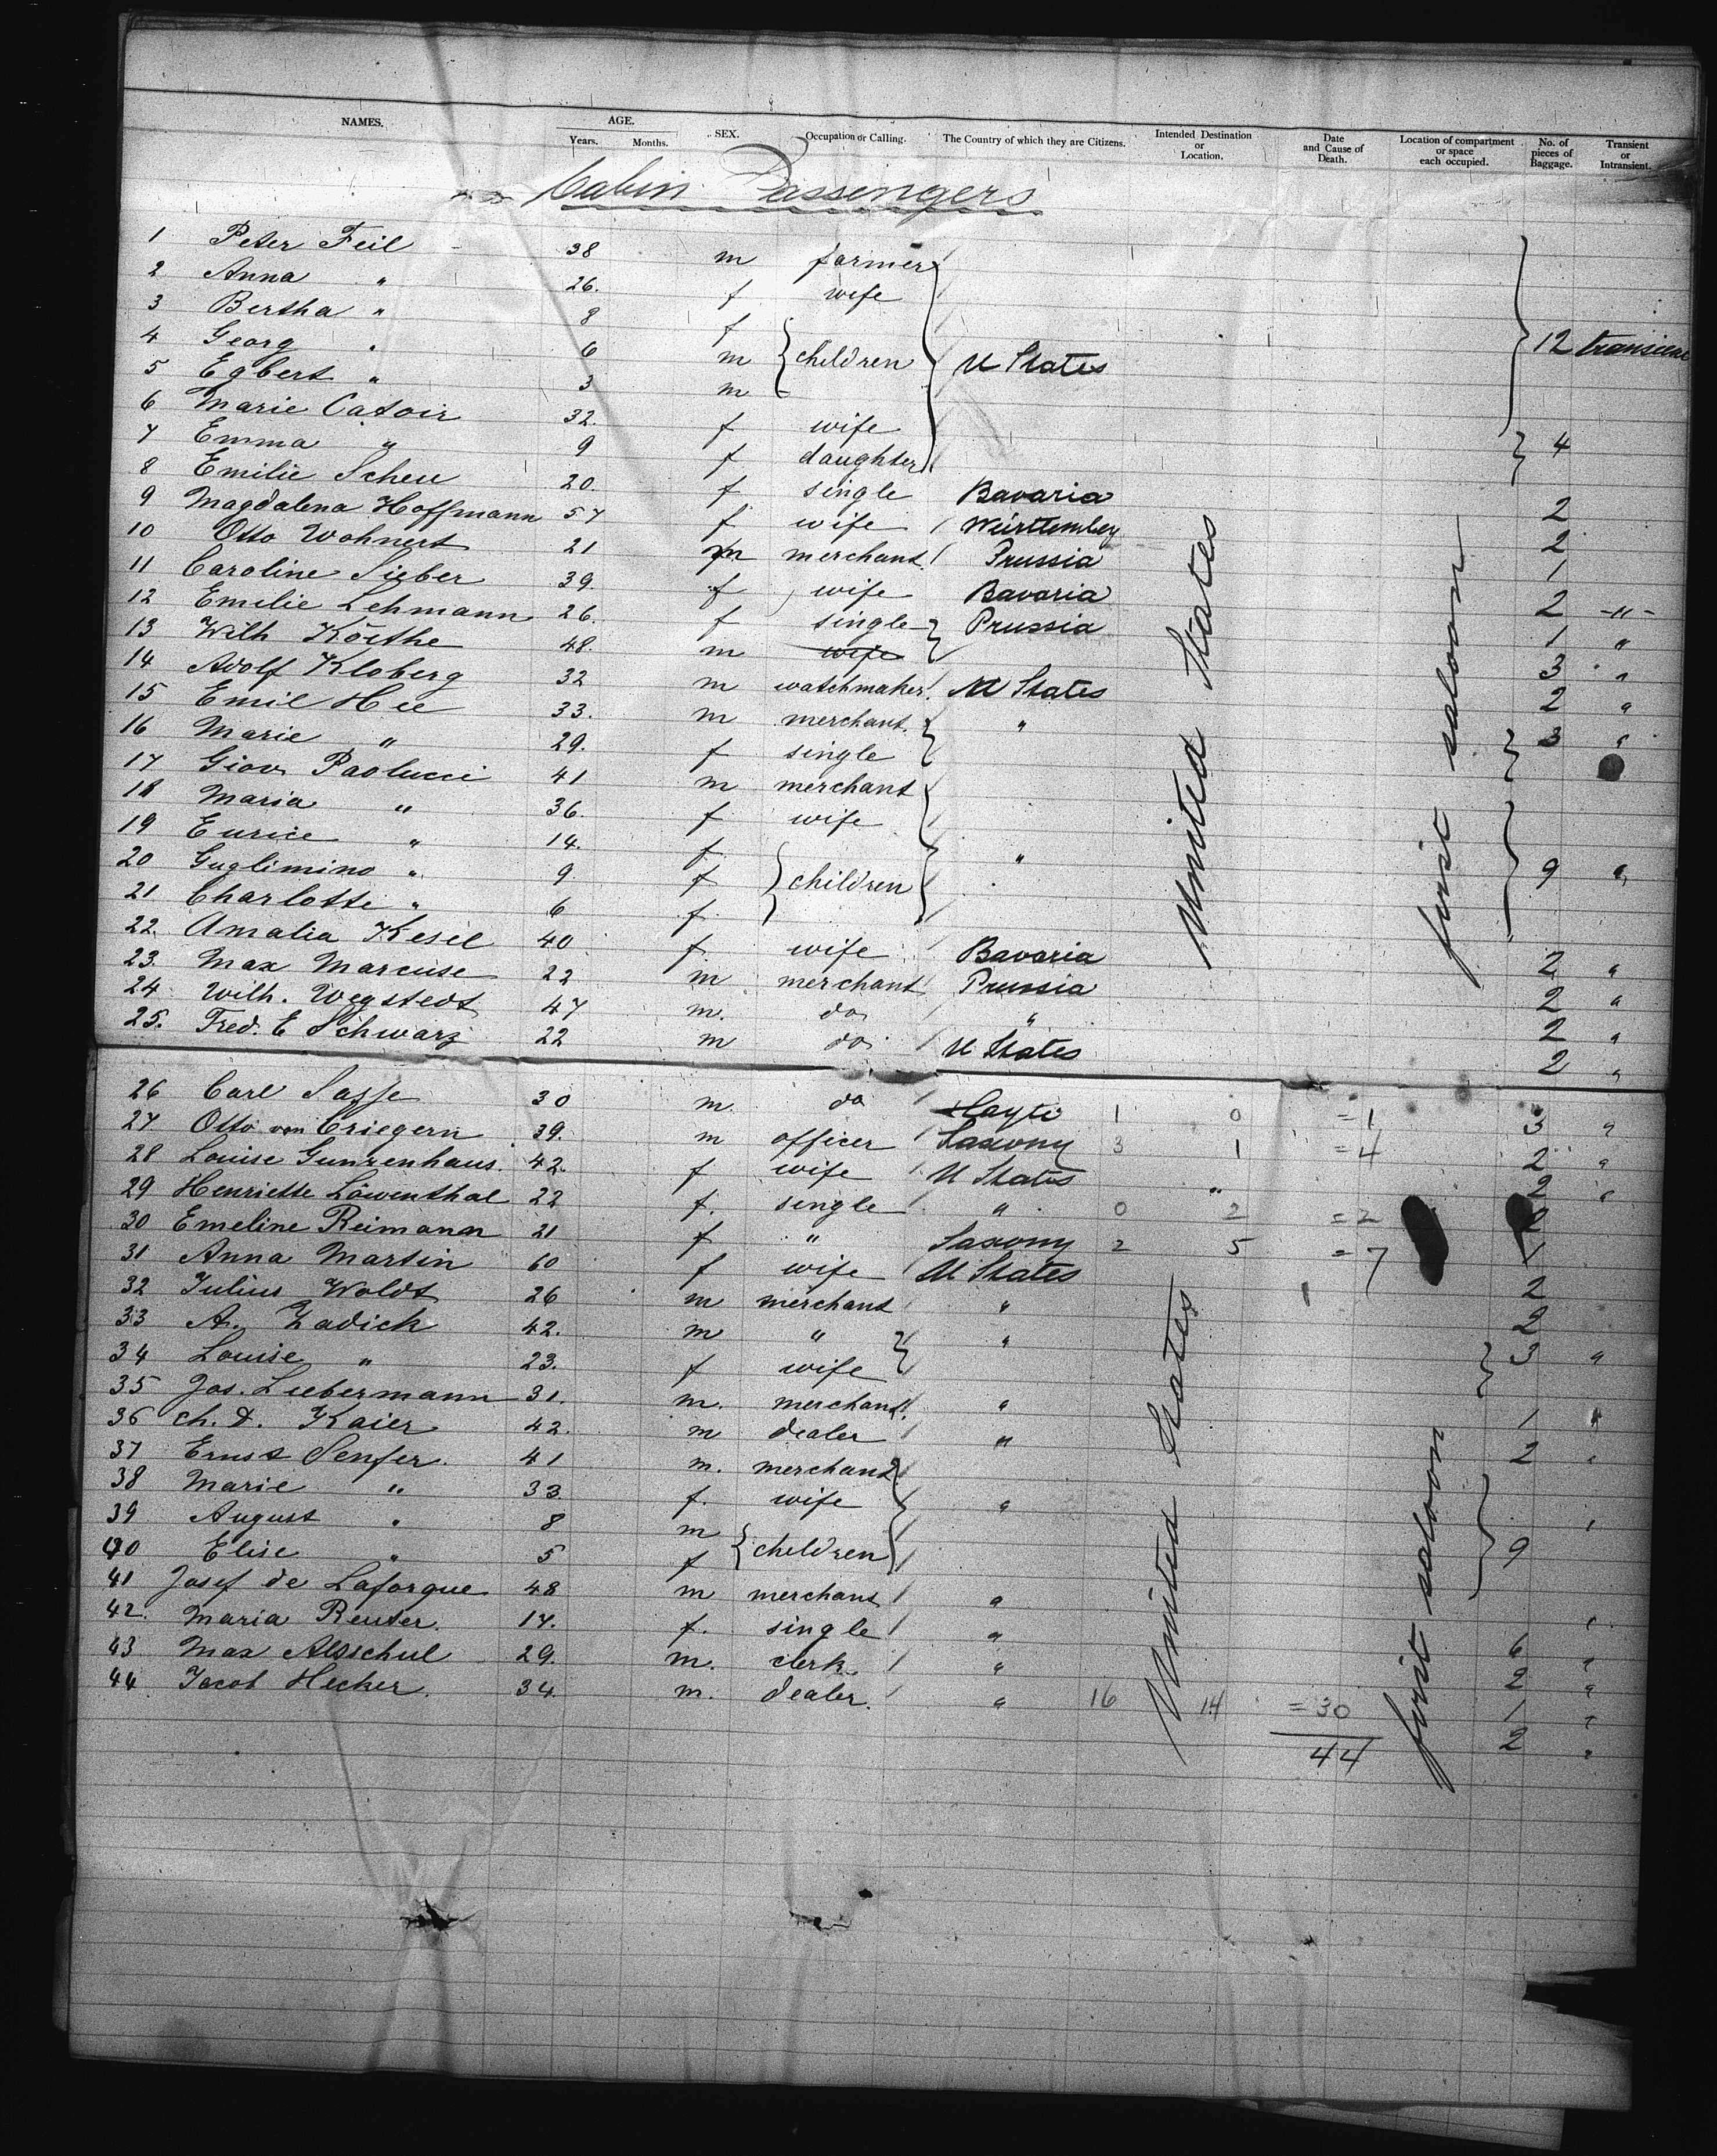 NAMES. AGE. Years. Months. SEX. Occupation or Calling. The Country of which they are Citizens. Intended Destination or Location. Date and Cause of Death. Location of compartment or space each occupied. No. of pieces of Baggage. Transient or Intransient.
Cabin Passengers
1 Peter Feil 38 m farmer
2 Anna " 26. f wife
3 Bertha " 8 f
4 Georg " 6 m children U States 12 transient
5 Egbert " 3 m
6 Marie Catoir 32. f wife
7 Emma " 9 f daughter 4
8 Emilie Scheu 20. f single Bavaria 2
9 Magdalena Hoffmann 57 f wife Württemberg 2
10 Otto Wohnert 21 m merchant Prussia 1
11 Caroline Sieber 39. f wife Bavaria 2 -"-
12 Emilie Lehmann 26. f single Prussia 1 "
13 Wilh Köethe 48. m wife 3 "
14 Adolf Kloberg 32 m watchmaker U States 2 "
15 Emil Hee 33. m merchant " 3 "
16 Marie " 29. f single
17 Giov. Paolucci 41 m merchant
18 Maria " 36. f wife
19 Eurice " 14. f "
20 Guglimino " 9. f children 9 "
21 Charlotte " 6 f
22. Amalia Kesel 40 f wife Bavaria 2 "
23. Max Marcuse 22 m merchant Prussia 2 "
24 Wilh. Wegstedt 47 m. do " 2 "
25. Fred. E Schwarz 22 m do U States 2 "
United States
first saloon
26 Carl Sasse 30 m. do Hayti 1 0 =1 3 "
27 Otto von Criegern 39. m officer Saxony 3 1 =4 2 "
28 Louise Gunzenhaus. 42. f wife U States " 2 "
29 Henriette Löwenthal 22 f. single " 0 2 =2 2
30 Emeline Reimann 21 f " Saxony 2 5 =7 1
31 Anna Martin 60 f wife U States 2
32 Julius Woldt 26 m merchant " 2
33 A. Zadick 42. m " " 3 "
34 Louise " 23. f wife
35 Jos. Liebermann 31. m. merchant " 1 "
36 Ch. D. Kaier 42. m dealer " 2 "
37 Ernst Senfer. 41 m. merchant
38 Marie " 33 f. wife "
39 August " 8 m children 9
40 Elise " 5 f
41 Josef de Laforgue 48 m merchant " 6 "
42. Maria Reuter. 17. f. single " 2 "
43 Max Altschul 29. m. clerk " 1 "
44 Jacob Hecker. 34. m. dealer. " 16 14 =30 2 "
44
United States
first saloon